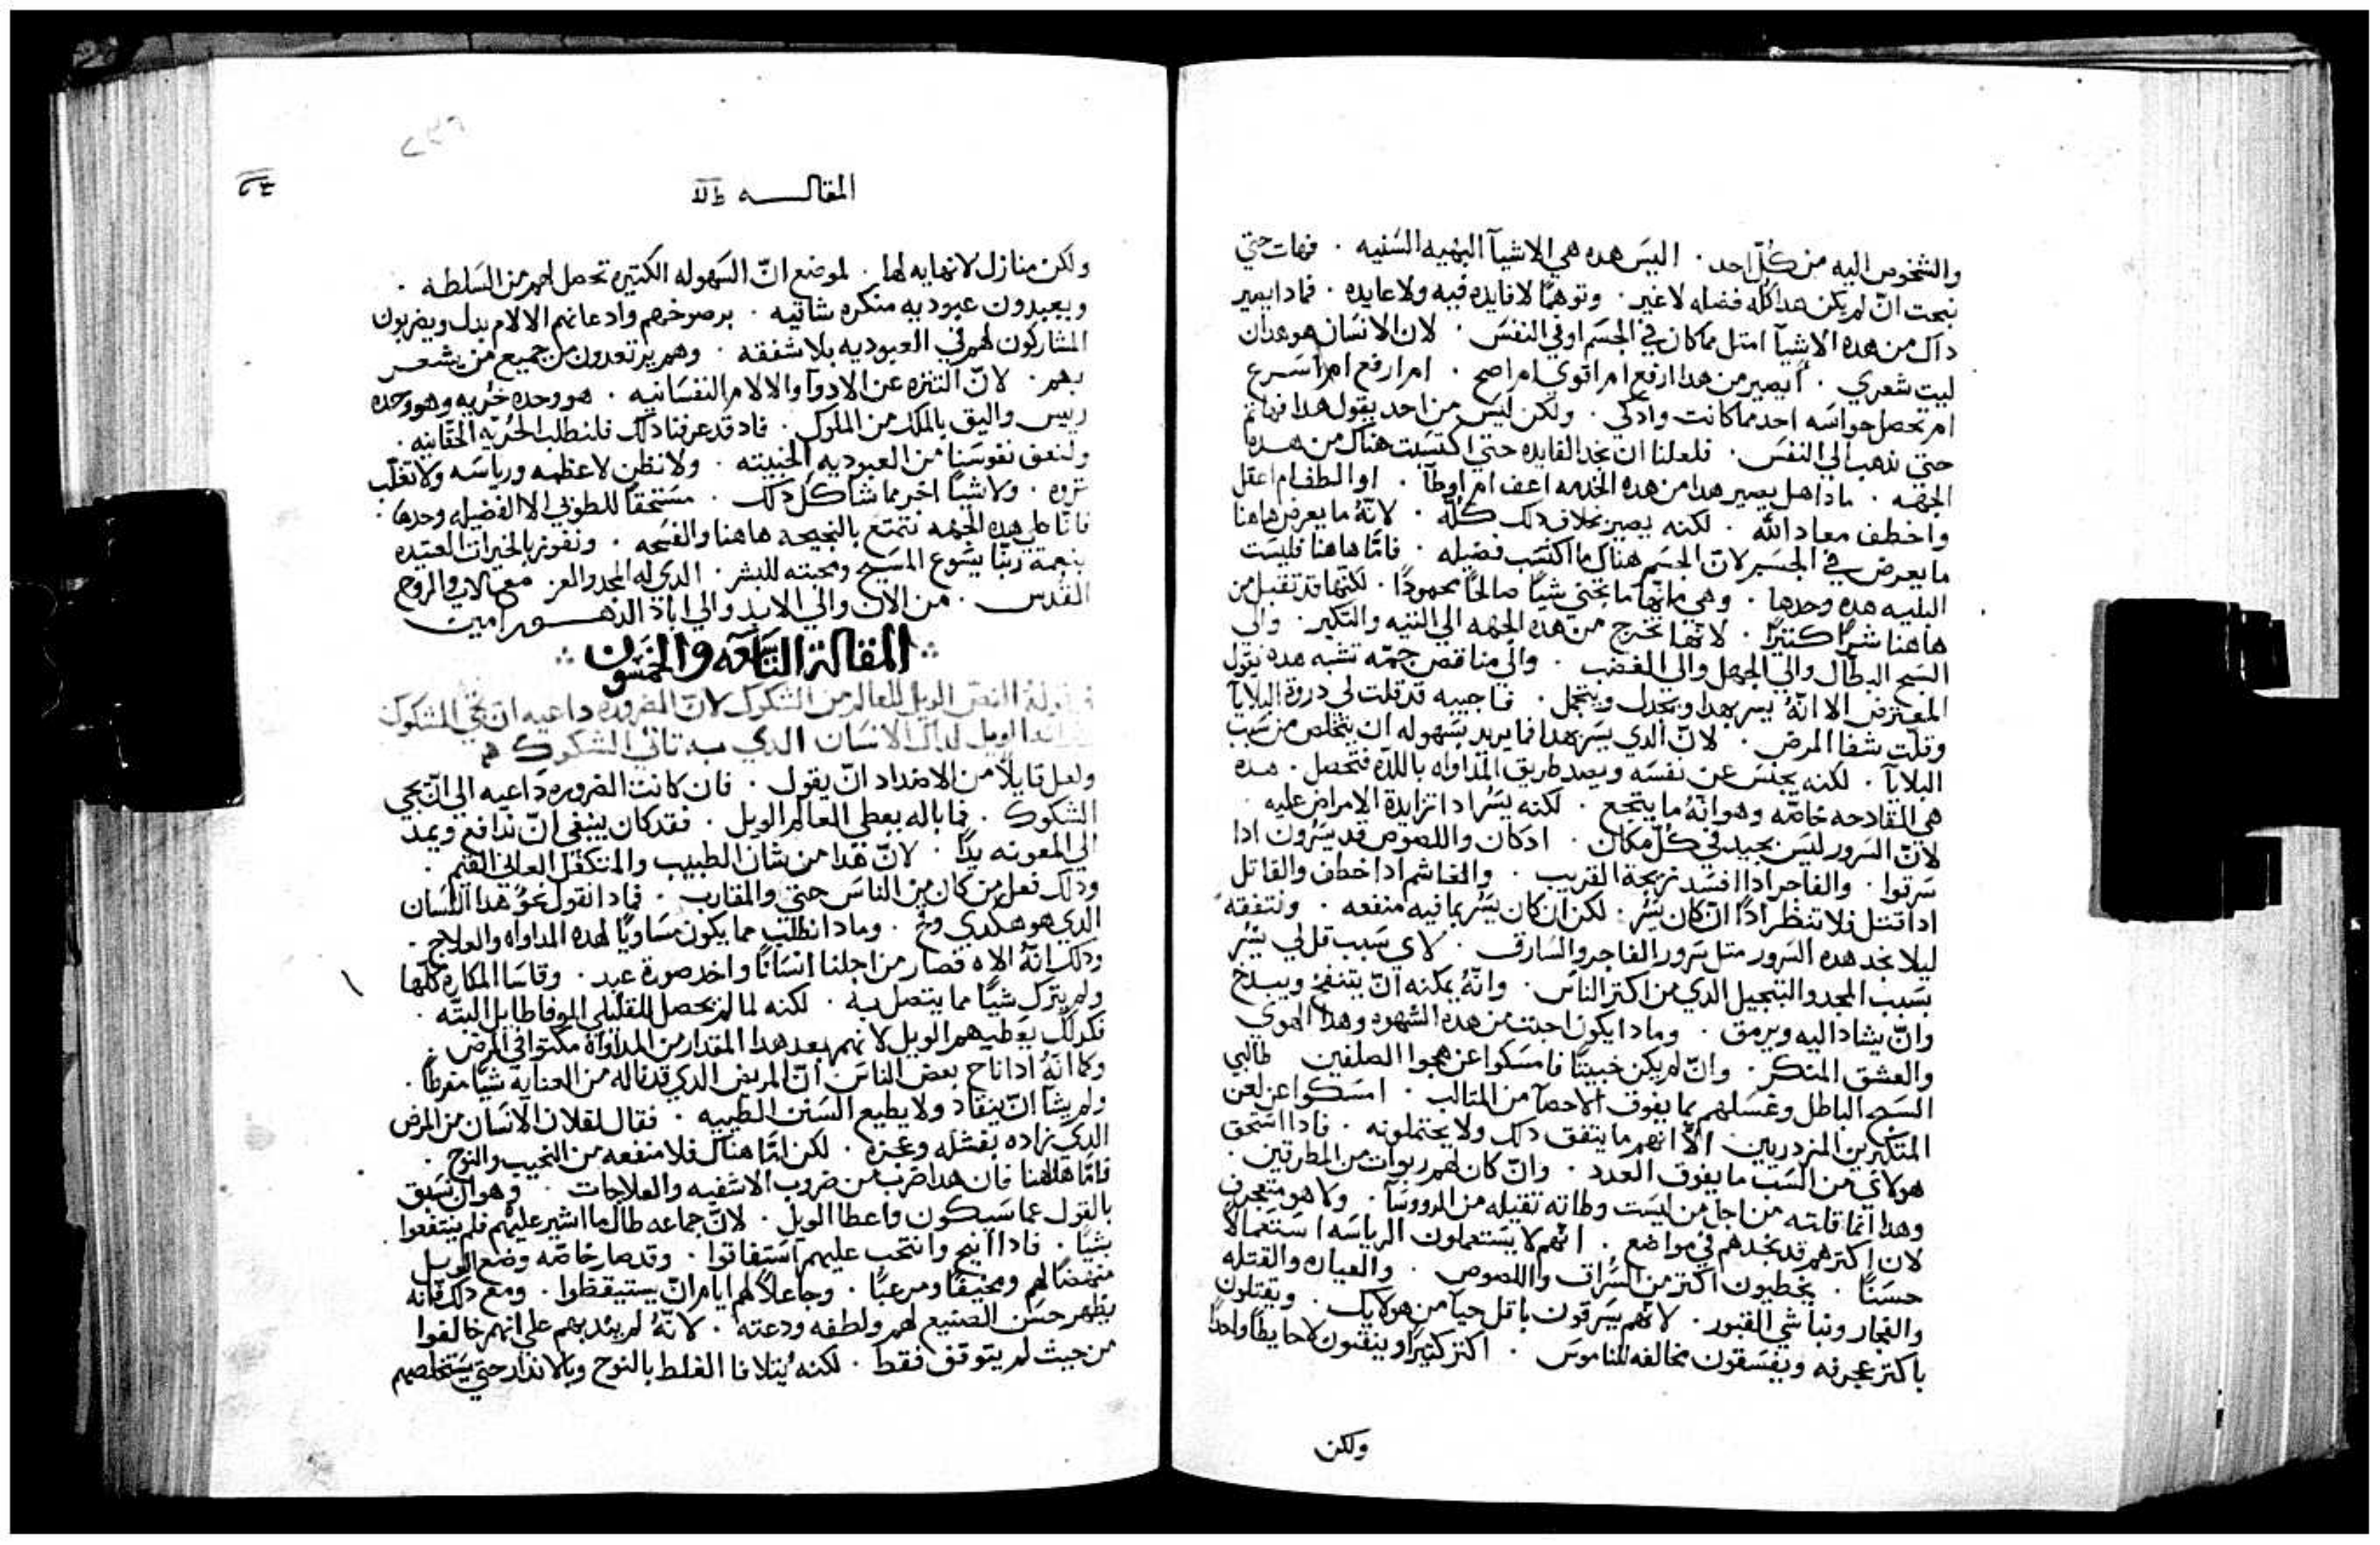 والشخوص اليه من كلّ احد . اليس هده هي الاشيآ البهيه السَنيه . فهات حتي
نبحت انّ لم يكن هدا كلّه فضله لا غير . وتوهمًا لا فايده فيه ولا عايده . فمادا يصير
داك من هده الاشيآ امتل مما كان في الجسَم او في النفسَ . لان الانسَان هو هدان
ليت شعري . ايصير من هدا ارفع ام اقوي ام اصح . ام ارفع ام اسَرع
ام تحصل حواسَه احد مما كانت وادكي . ولكن ليسَ من احد يقول هدا فهاتم
حتي ندهب الي النفسَ . فلعلنا ان نجد الفايده حتي اكتسَبت هناك من هده
الجهه . مادا هل يصير هدا من هده الخدمه اعف ام اوطآ . او الطف ام اعقل
واخطف معاد الله . لكنه يصير بخلاف دلك كلّه . لانّهُ ما يعرض هاهنا
ما يعرض في الجسَم لانّ الجسَم هناك ما اكتسَب فضيله . فامّا هاهنا فليسَت
البليه هده وحدها . وهي بانّها ما تجني شيًا صالحًا محمودًا . لكنّها قد تقبل من
هاهنا شرًا كتيرًا . لانها تخرج من هده الجهه الي التيه والتكبر . والي
السَبح البطال والي الجهل والي الغضب . والي مناقص جمّه تشبه هده يقول
المعترض الا انّهُ يسر بهدا ويجدل ويتجمل . فاجيبه قد قلت لي دروة البلايآ
وقلت شفا المرض . لانّ الدي يسَر بهدا فما يريد بسَهوله ان يتخلص من سَبب
البلايآ . لكنه يحبسَ عن نفسَه ويصد طريق المداواه باللده فتحصل . هده
هي الفادحه خاصّه وهو انّهُ ما يتجع . لكنه يسُر ادا تزايدة الامراض عليه .
لانّ السَرور ليسَ بجيد في كلّ مكان . ادكان واللصوص قد يسَرون ادا
سَرقوا . والفاجر ادا افسَد زيجة القريب . والغاشم ادا خطف والقاتل
ادا قتل فلا تنظر ادًا انّ كان يسَر : لكن ان كان يسَر بما فيه منفعه . ونتفقهُ
ليلا نجد هده السَرور متل سَرور الفاجر والسَارق . لاي سَبب قل لي يسَر
بسَبب المجد والتبجيل الدي من اكتر الناسَ . وانّهُ يمكنه انّ يتنفخ ويبدخ
وانّ يشاد اليه ويرمق . ومادا يكون اخبت من هده الشهوه وهدا الهوي
والعشق المنكر . وانّ لم يكن خبيتًا فامسَكوا عن هجوا الصلفين طالبي
السَبح الباطل وغسَلهم بما يفوق الاحصآ من المتالب . امسَكوا عن لعن
المتكبرين المزدريين الّا انهم ما يتفق دلك ولا يحتملونه . فادا استحق
هولاي من السَب ما يفوق العدد . وانّ كان لهم ربوات من المطرقين .
وهدا انما قلته من اجل من ليسَت وطاته تقيله من الرووسَآ . ولا هو متعجرف
لان اكترهم قد نجدهم في مواضع . انّهم لا يسَتعملون الرياسَه اسَتعمالًا
حسَنًا . يخطيون اكتر من السَراق واللصوص . والعياره والقتله
والفجار ونباشي القبور . لانّهم يسَرقون باقل حيآ من هولايك . ويقتلون
باكتر عجرفه ويفسَقون مخالفه للناموسَ . اكتر كتيرًا وينقبون لا حايطًا واحدًا
ولكن
المقالـــه
ولكن منازل لا نهايه لها . لموضع انّ السَهوله الكتيره تحصل لهم من السَلطه .
ويعبدون عبوديه منكره شانيه . برضوخهم وادعانهم الالام بدل ويضربون
المشاركون لهم في العبوديه بلا شفقه . وهم يرتعدون من جميع من يشعر
بهم . لانّ التنزه عن الادوآ والالام النفسَانيه . هو وحده حُريه وهو وحده
رييس واليق بالملك من الملوك . فاد قد عرفنا دلك فلنطلب الحُريّه الحقّانيه .
ولنعق نفوسَنا من العبوديه الخبيته . ولا نظن لا عظمه ورياسَه ولا تغلّب
تروه . ولا شيًا اخر مما شاكل دلك . مسَتحقًا للطوبي الا الفضيله وحدها .
فانّا علي هده الجهه نتمتع بالنجيحه هاهنا والفسَحه . ونفوز بالخيرات العتيده
بنعمة ربّنا يسَوع المسَيح ومحبته للبشر . الدي له المجد والعز مع الاب والروح
القُدس . من الان والي الابد والي اباد الدهــور امين
المقالة التَاسَعه والخمسَون
في قولهُ النصّ الويل للعالم من الشكوك لانّ الضروره داعيه ان تجي الشكوك
الويل لداك الانسَان الدي به تاتي الشكوك
ولعل قايلًا من الاضداد انّ يقول . فان كانت الضروره داعيه الي انّ تجي
الشكوك . فما باله يعطي العالم الويل . فقد كان ينبغي انّ ندافع ويمد
الي المعونه يدًا . لانّ هدا من شان الطبيب والمتكفل العالي القيم .
ودلك فعل من كان من الناسَ حتي والمقارب . فمادا نقول نحو هدا اللسَان
الدي هو هكدي وقح . ومادا نطلب مما يكون مسَاويًا لهده المداواه والعلاج .
ودلك انّهُ الاه فصار من اجلنا انسَانًا واخد صورة عبد . وقاسَا المكاره كلّها
ولم يترك شيًا مما يتصل به . لكنه لما لم يحصل للقليلي الوفا طايل البتّه .
فكدلك يعطيهم الويل لانهم بعد هدا المقدار من المداواه مكتوا في المرض .
وكما انّهُ ادا ناح بعض الناسَ انّ المريض الدي قد ناله من العنايه شيًا مفرطًا .
ولم يشا انّ ينقاد ولا يطيع السَنن الطبيه . فقال لفلان الانسَان من المرض
الدي زاده بفشله وعجزه . لكن امّا هناك فلا منفعه من النحيب والنوح .
فامّا هاهنا فان هدا ضرب من ضروب الاشفيه والعلاجات . وهو ان نسَبق
بالقول عما سَيكون واعطا الويل . لانّ جماعه طال ما اشير عليهم فلم ينتفعوا
بشيًا . فادا انيح وانتحب عليهم استفاقوا . وقد صار خاصّه وضع الويل
منهضًا لهم ومخيفًا ومرعبًا . وجاعلًا لهم ايام انّ يستيقظوا . ومع دلك فانه
يظهر حسَن الصنيع لهم ولطفه ودعته . لانّهُ لم يندبهم علي انهم خالفوا
من حيث لم يتوقف فقط . لكنه يتلافا الغلط بالنوح وبالاندار حتي يسَتخلصهم